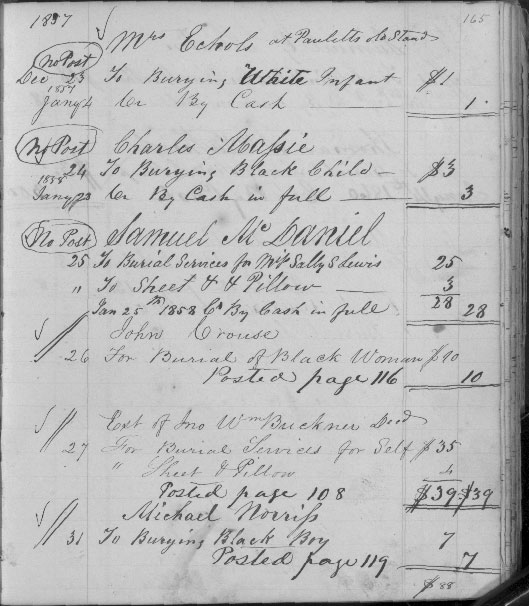 1857 165
Mrs Echols at Pauletts old Stand
No Post
Dec 23 To Burying White Infant $1
1857
Jany 4 Cr By Cash 1.
No Post Charles Massie
24 To Burying Black Child $3
1858
Jany 23 Cr By Cash in full 3
No Post Samuel McDaniel
25 To Burial Services for Mrs Sally S Lewis 25
" To Sheet & Pillow 3
Jan 25th 1858 Cr By Cash in full 28 28
John Crouse
26 For Burial of Black Woman $10
Posted page 116 10
Est of Jno Wm Buckner Decd
27 For Burial Services for Self $35
" Sheet & Pillow 4
Posted page 108 $39 $39
Michael Norriss
31 To Burying Black Boy 7
Posted page 119 7
$88